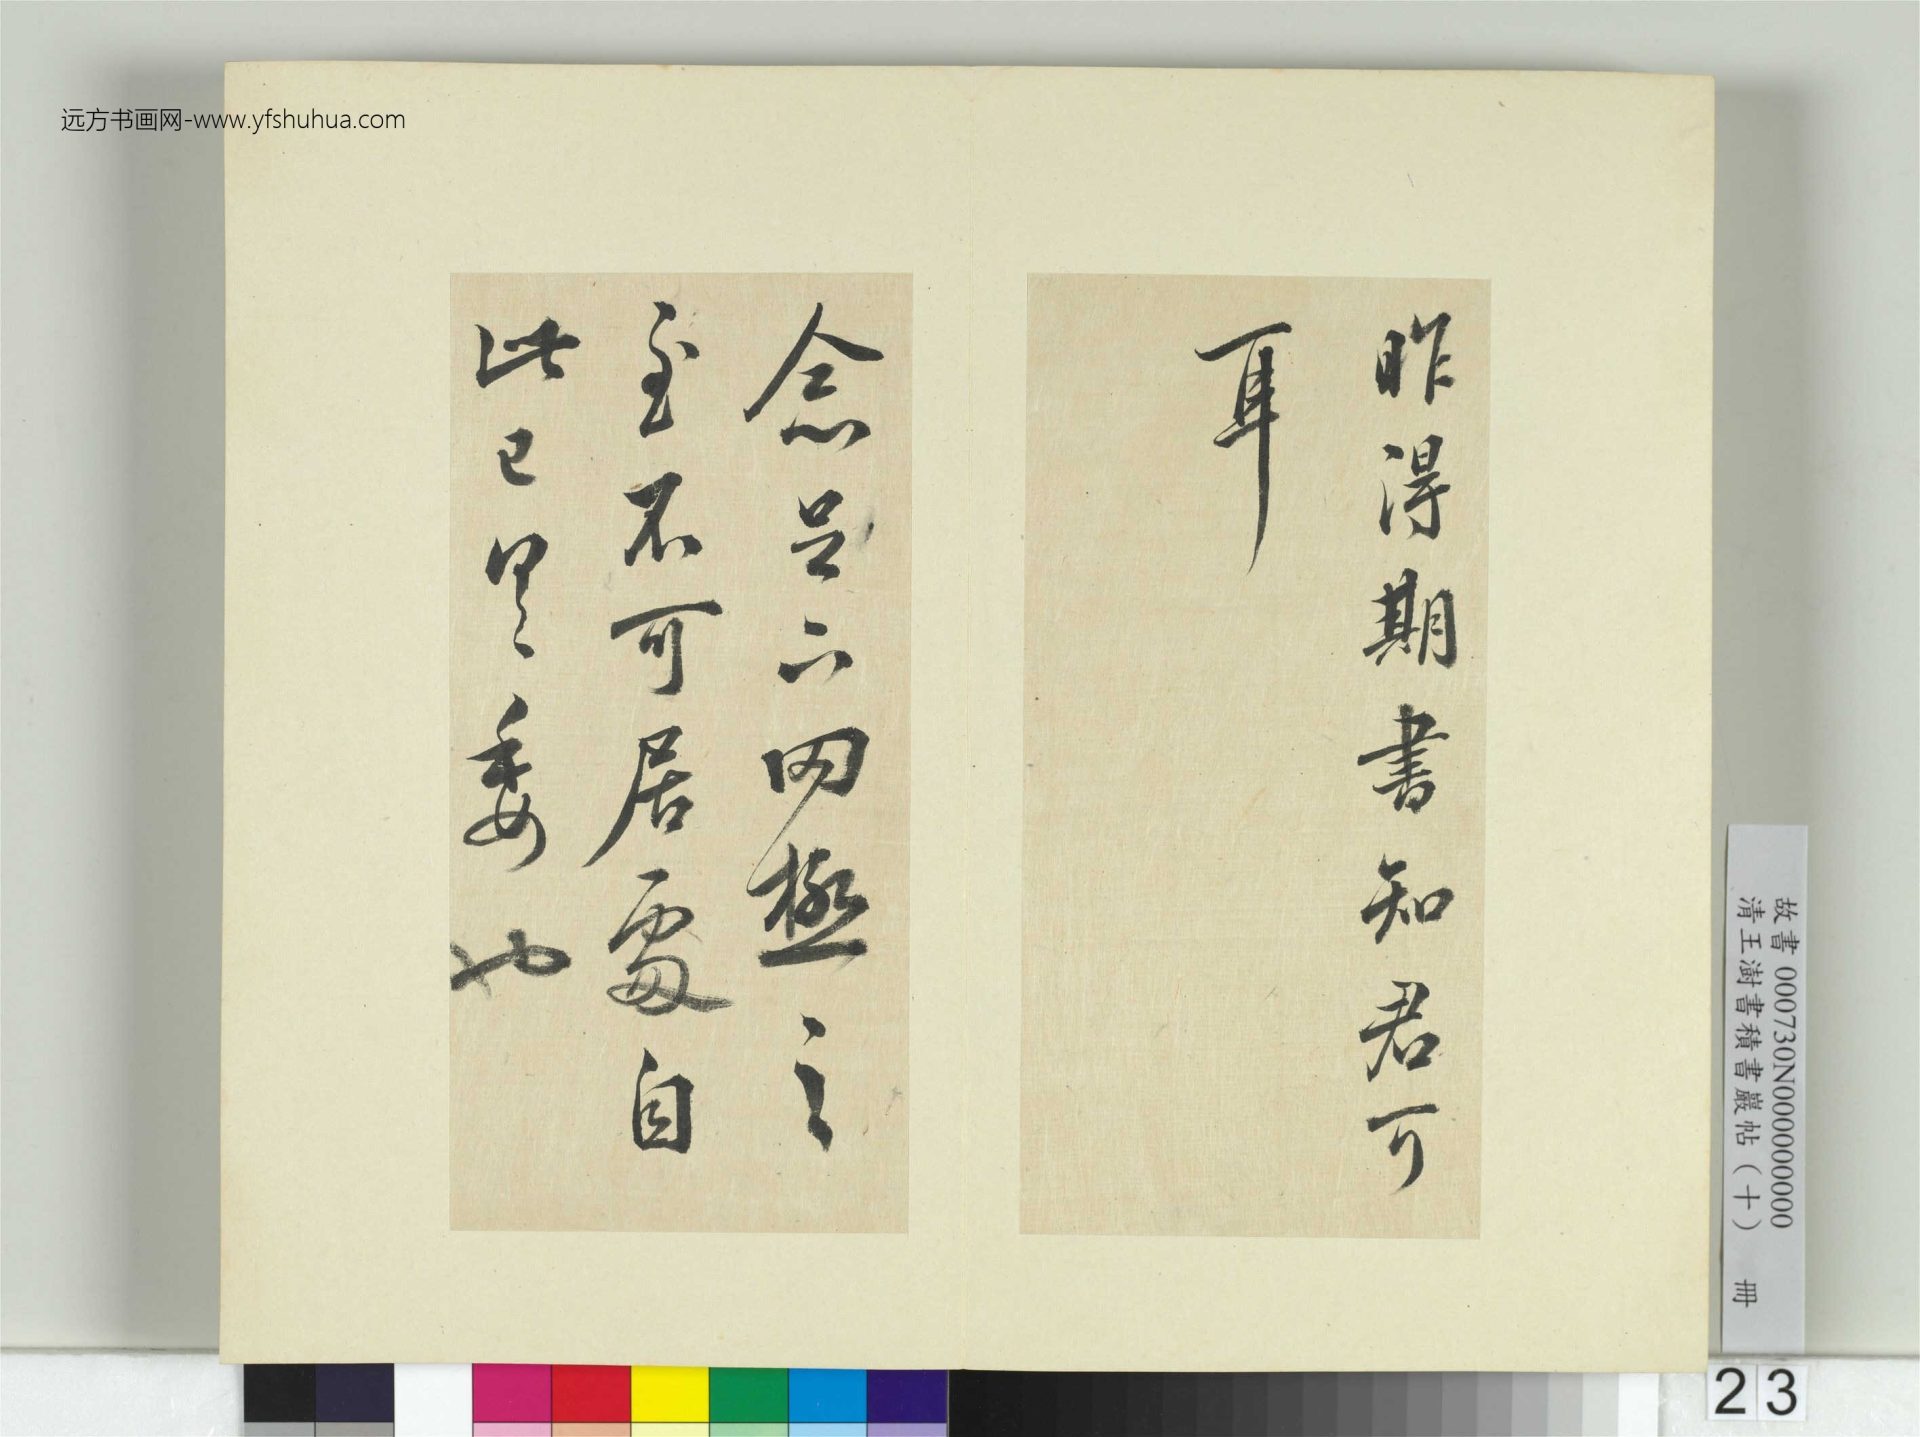 远方书画网-www.yfshuhua.com
昨得期書知君可
耳
念足下罔極之
至不可居處自
此已委也
故書 000730N000000000
清王澍書積書巖帖（十） 冊
23